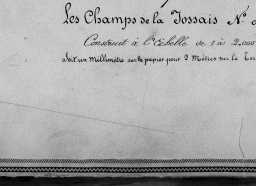 Les Champs de la Fossais N°
Construit à l'Echelle de 1 à 2.000
Soit un Millimètre sur le papier pour 2 Mètres sur le